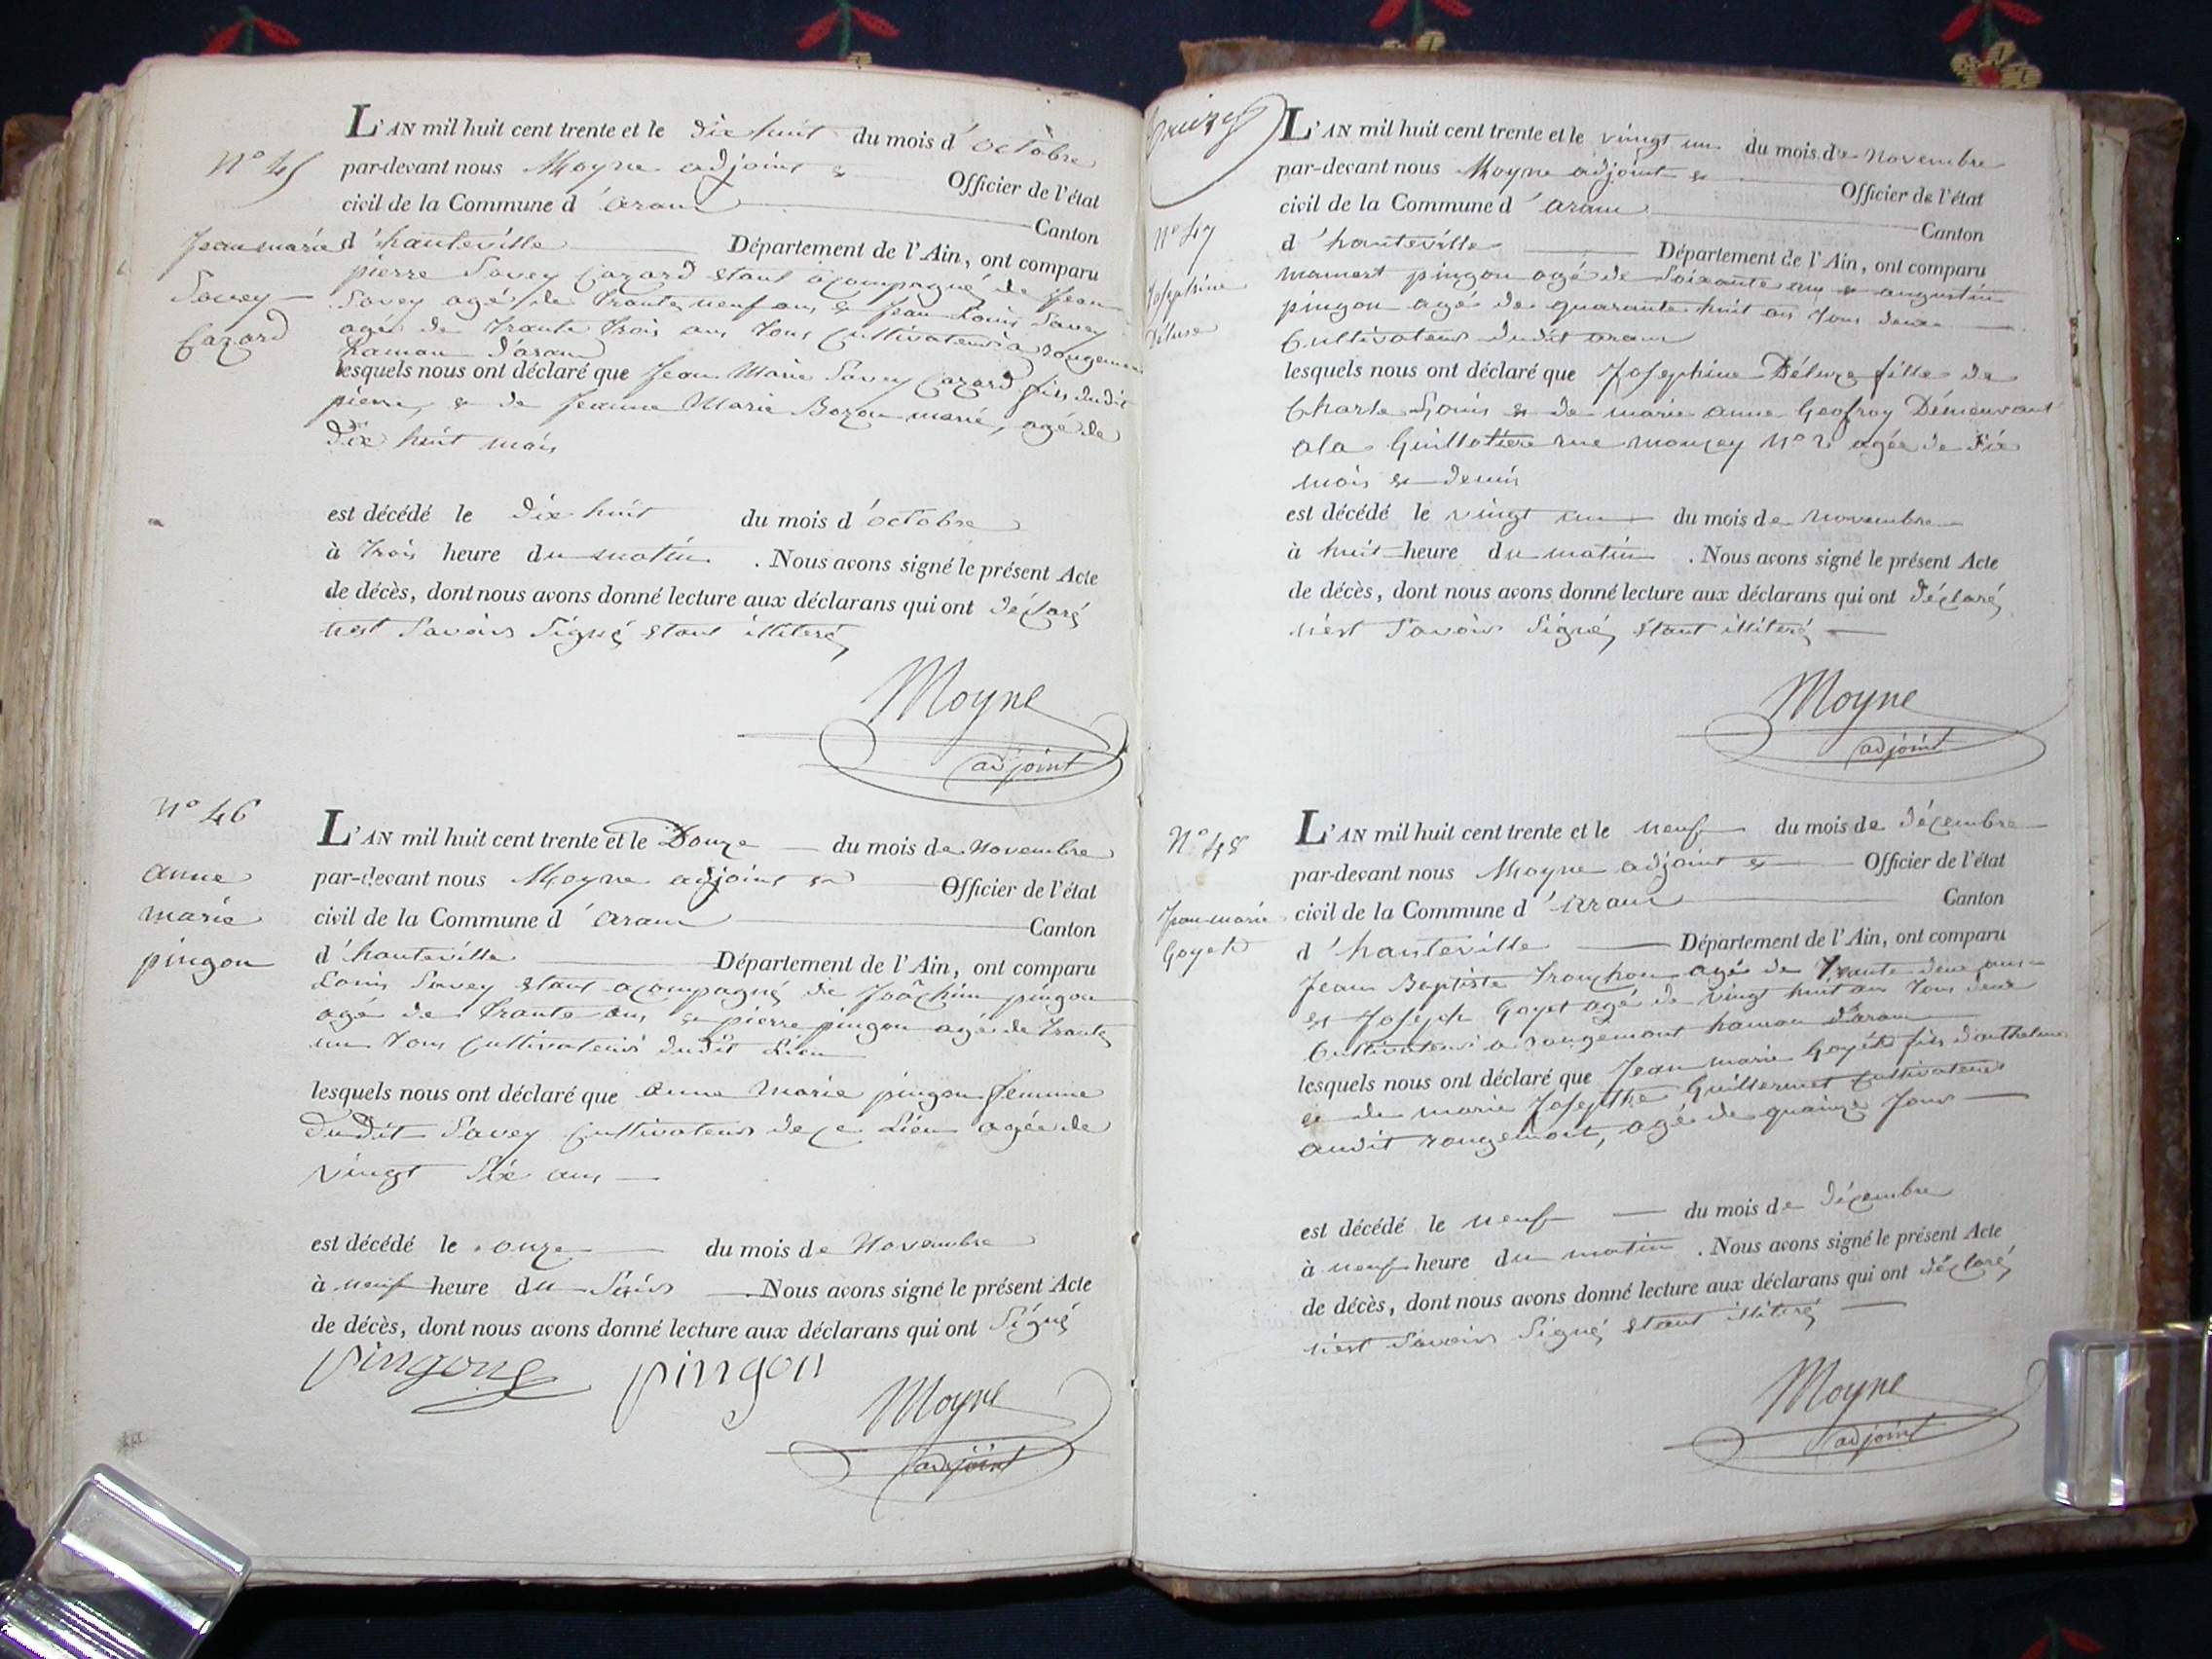 N° 45
Jean marie
Savey
Cazard
L'AN mil huit cent trente et le dix huit du mois d'octobre
par-devant nous Moyne adjoint Officier de l'état
civil de la Commune d'aranc Canton
d'hauteville Département de l'Ain, ont comparu
pierre Savey Cazard etant acompagné de Jean
Savey agé de trante neuf ans & Jean Louis Savey
agé de trante trois ans tous Cultivateurs a rougemont
hamau d'aranc
lesquels nous ont déclaré que Jean Marie Savey Cazard fils dudit
pierre, & de Jeanne Marie Bozon marié, agé de
dix huit mois
est décédé le dix huit du mois d'octobre
à trois heure du matin . Nous avons signé le présent Acte
de décès, dont nous avons donné lecture aux déclarans qui ont déclaré
nest Savoir Signé etant illiteré
Moyne
adjoint
N° 46
anne
marie
pingon
L'AN mil huit cent trente et le Douze du mois de Novembre
par-devant nous Moyne adjoint Officier de l'état
civil de la Commune d'aranc Canton
d'hauteville Département de l'Ain, ont comparu
Louis Savey etant acompagné de Joâchim pingon
agé de trante ans & pierre pingon agé de trante
un tous Cultivateurs dudit Lieu
lesquels nous ont déclaré que anne Marie pingon femme
dudit Savey Cultivateur de ce Lieu agée de
vingt Six ans
est décédé le onze du mois de Novembre
à neuf heure du Soir . Nous avons signé le présent Acte
de décès, dont nous avons donné lecture aux déclarans qui ont Signé
pingon pingon
Moyne
adjoint
N° 47
Josephine
Déluse
L'AN mil huit cent trente et le vingt un du mois de Novembre
par-devant nous Moyne adjoint Officier de l'état
civil de la Commune d'aranc Canton
d'hauteville Département de l'Ain, ont comparu
mamert pingon agé de Soixante ans & augustin
pingon agé de quarante huit ans tous deux
Cultivateurs dudit aranc
lesquels nous ont déclaré que Josephine Déluze fille de
Charle Louis & de marie anne Geofroy Démeurant
ala Guillotiere rue moncey N° 2 agée de dix
mois & demis
est décédé le vingt un du mois de Novembre
à huit heure du matin . Nous avons signé le présent Acte
de décès, dont nous avons donné lecture aux déclarans qui ont déclaré
n'est Savoir Signé etant illiteré
Moyne
adjoint
N° 48
Jean marie
Goyet
L'AN mil huit cent trente et le neuf du mois de décembre
par-devant nous Moyne adjoint Officier de l'état
civil de la Commune d'Aranc Canton
d'hauteville Département de l'Ain, ont comparu
Jean Baptiste Tronchon agé de trante deux ans
et Joseph Goyet agé de vingt huit ans tous deux
Cultivateurs a rougemont hamau d'aranc
lesquels nous ont déclaré que Jean marie Goyet fils d'anthelme
& de marie Josepthe Guillermet Cultivateurs
audit rougemont, agé de quainze Jours
est décédé le neuf du mois de décembre
à neuf heure du matin . Nous avons signé le présent Acte
de décès, dont nous avons donné lecture aux déclarans qui ont déclaré
n'est Savoir Signé etant illiteré
Moyne
adjoint